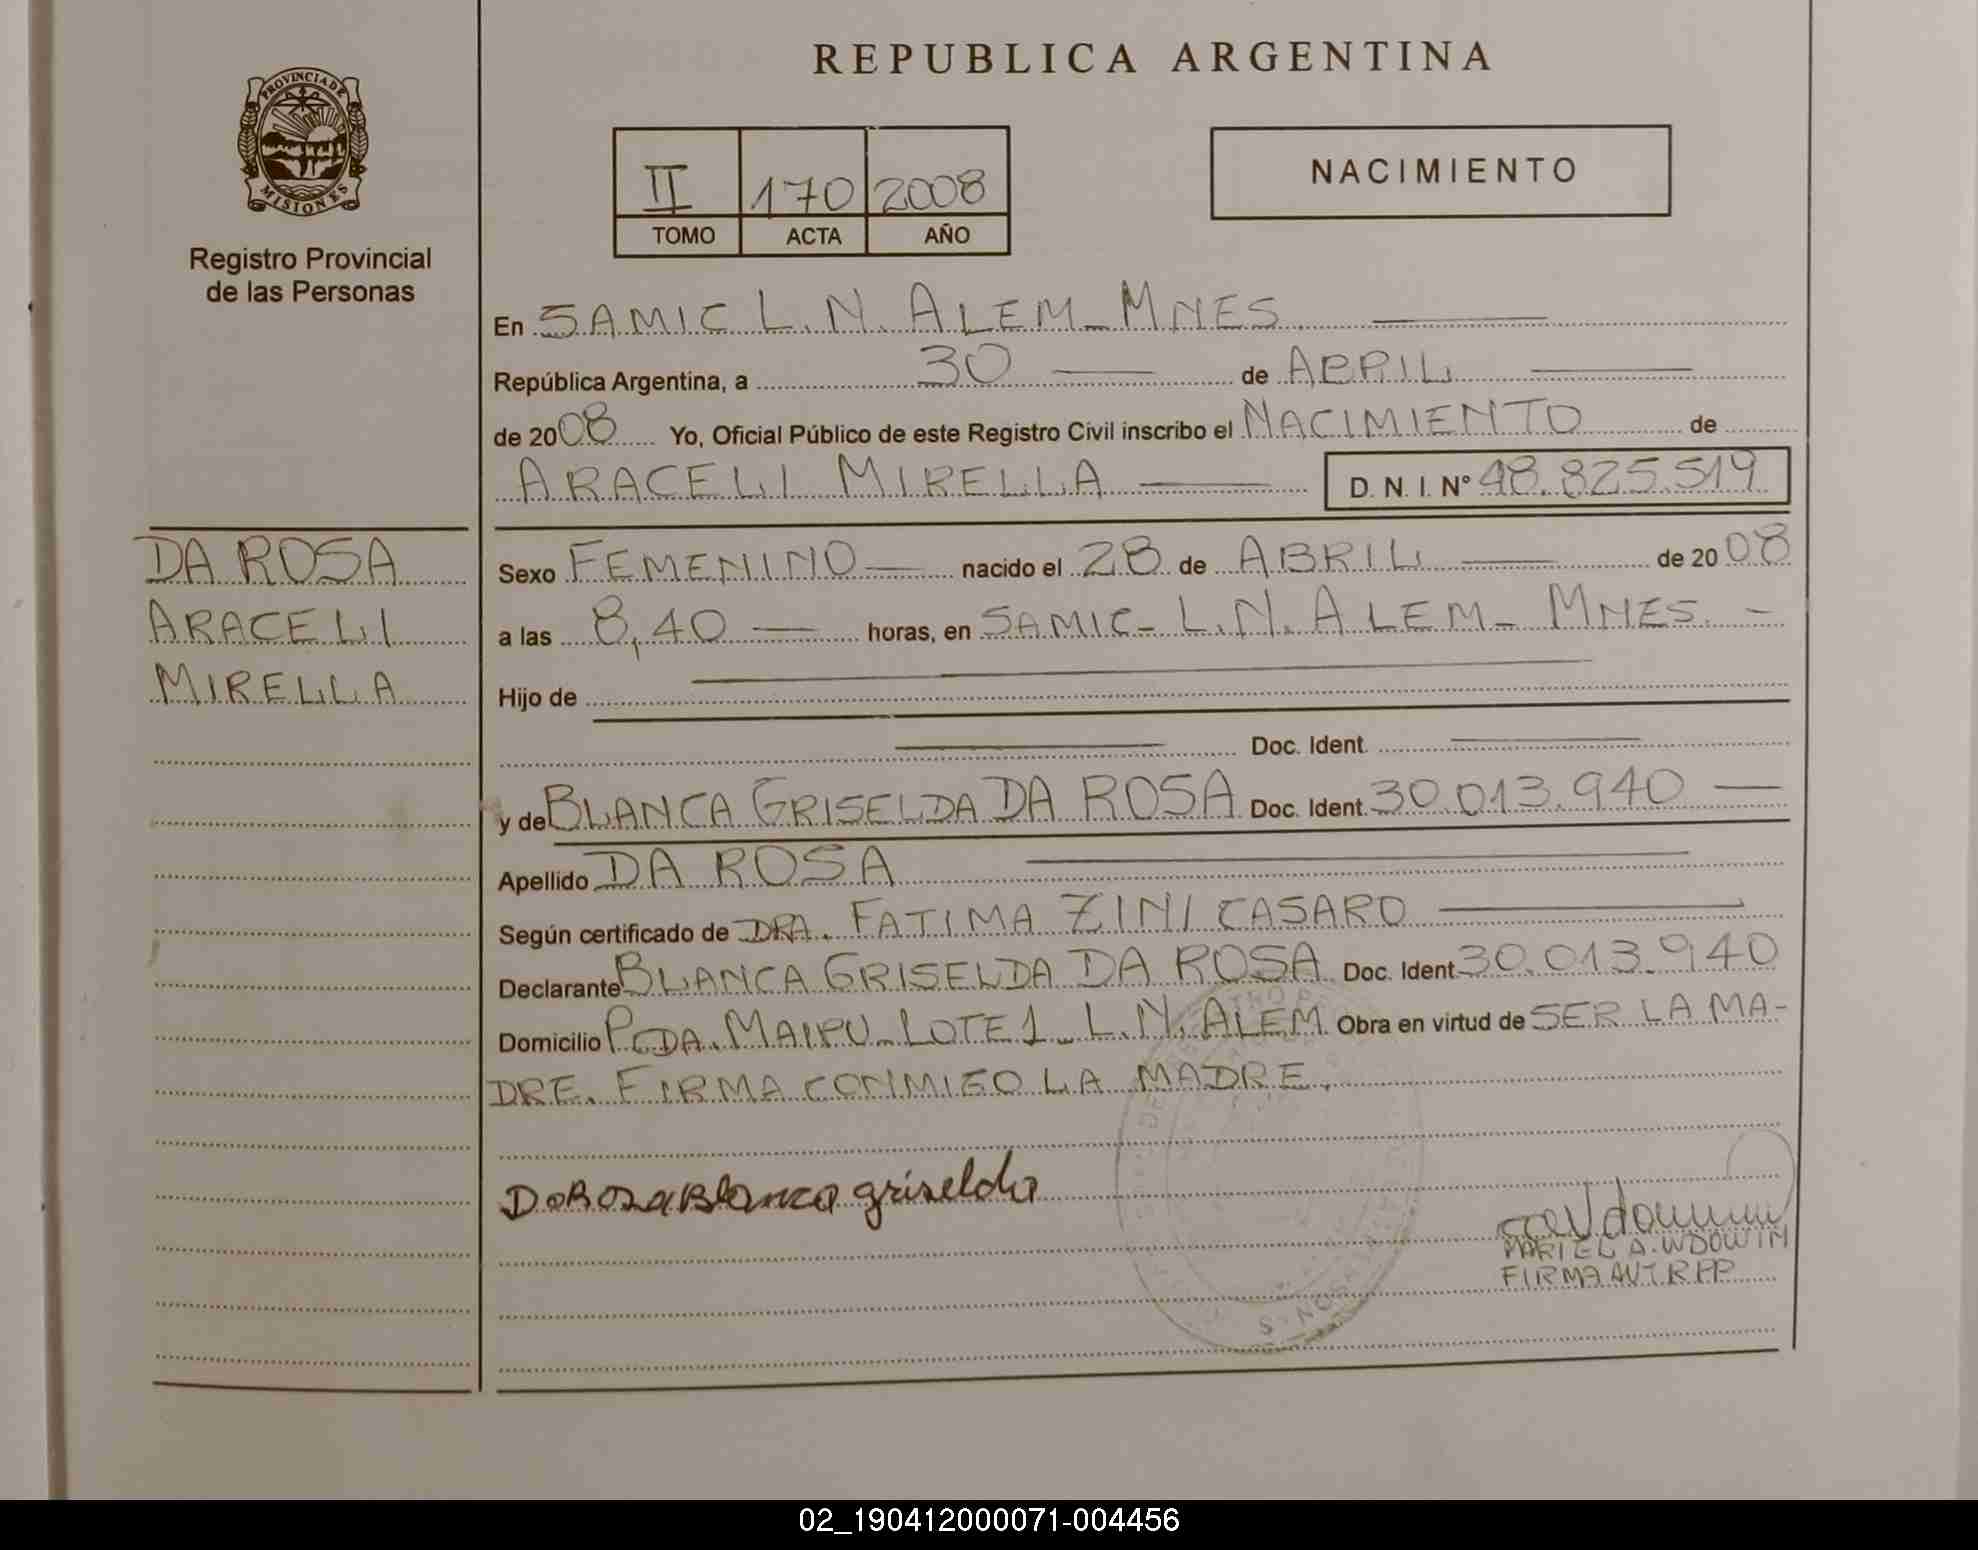 REPUBLICA ARGENTINA
PROVINCIA DE
MISIONES
Registro Provincial
de las Personas
II 170 2008
TOMO ACTA AÑO
NACIMIENTO
En SAMIC L. N. ALEM - MNES
República Argentina, a 30 de ABRIL
de 2008 Yo, Oficial Público de este Registro Civil inscribo el NACIMIENTO de
ARACELI MIRELLA D. N. I. N° 48.825.519
DA ROSA
ARACELI
MIRELLA
Sexo FEMENINO nacido el 28 de ABRIL de 2008
a las 8,40 horas, en SAMIC - L.N. ALEM - MNES. -
Hijo de
Doc. Ident.
y de BLANCA GRISELDA DA ROSA Doc. Ident. 30.013.940
Apellido DA ROSA
Según certificado de DRA. FATIMA ZINI CASARO
Declarante BLANCA GRISELDA DA ROSA Doc. Ident. 30.013.940
Domicilio PCDA. MAIPU - LOTE 1 - L.N. ALEM Obra en virtud de SER LA MA-
DRE. FIRMA CONMIGO LA MADRE.
Da Rosa Blanca griselda
MARIEL A. WDOWIN
FIRMA AUT. R.P.P
02_190412000071-004456